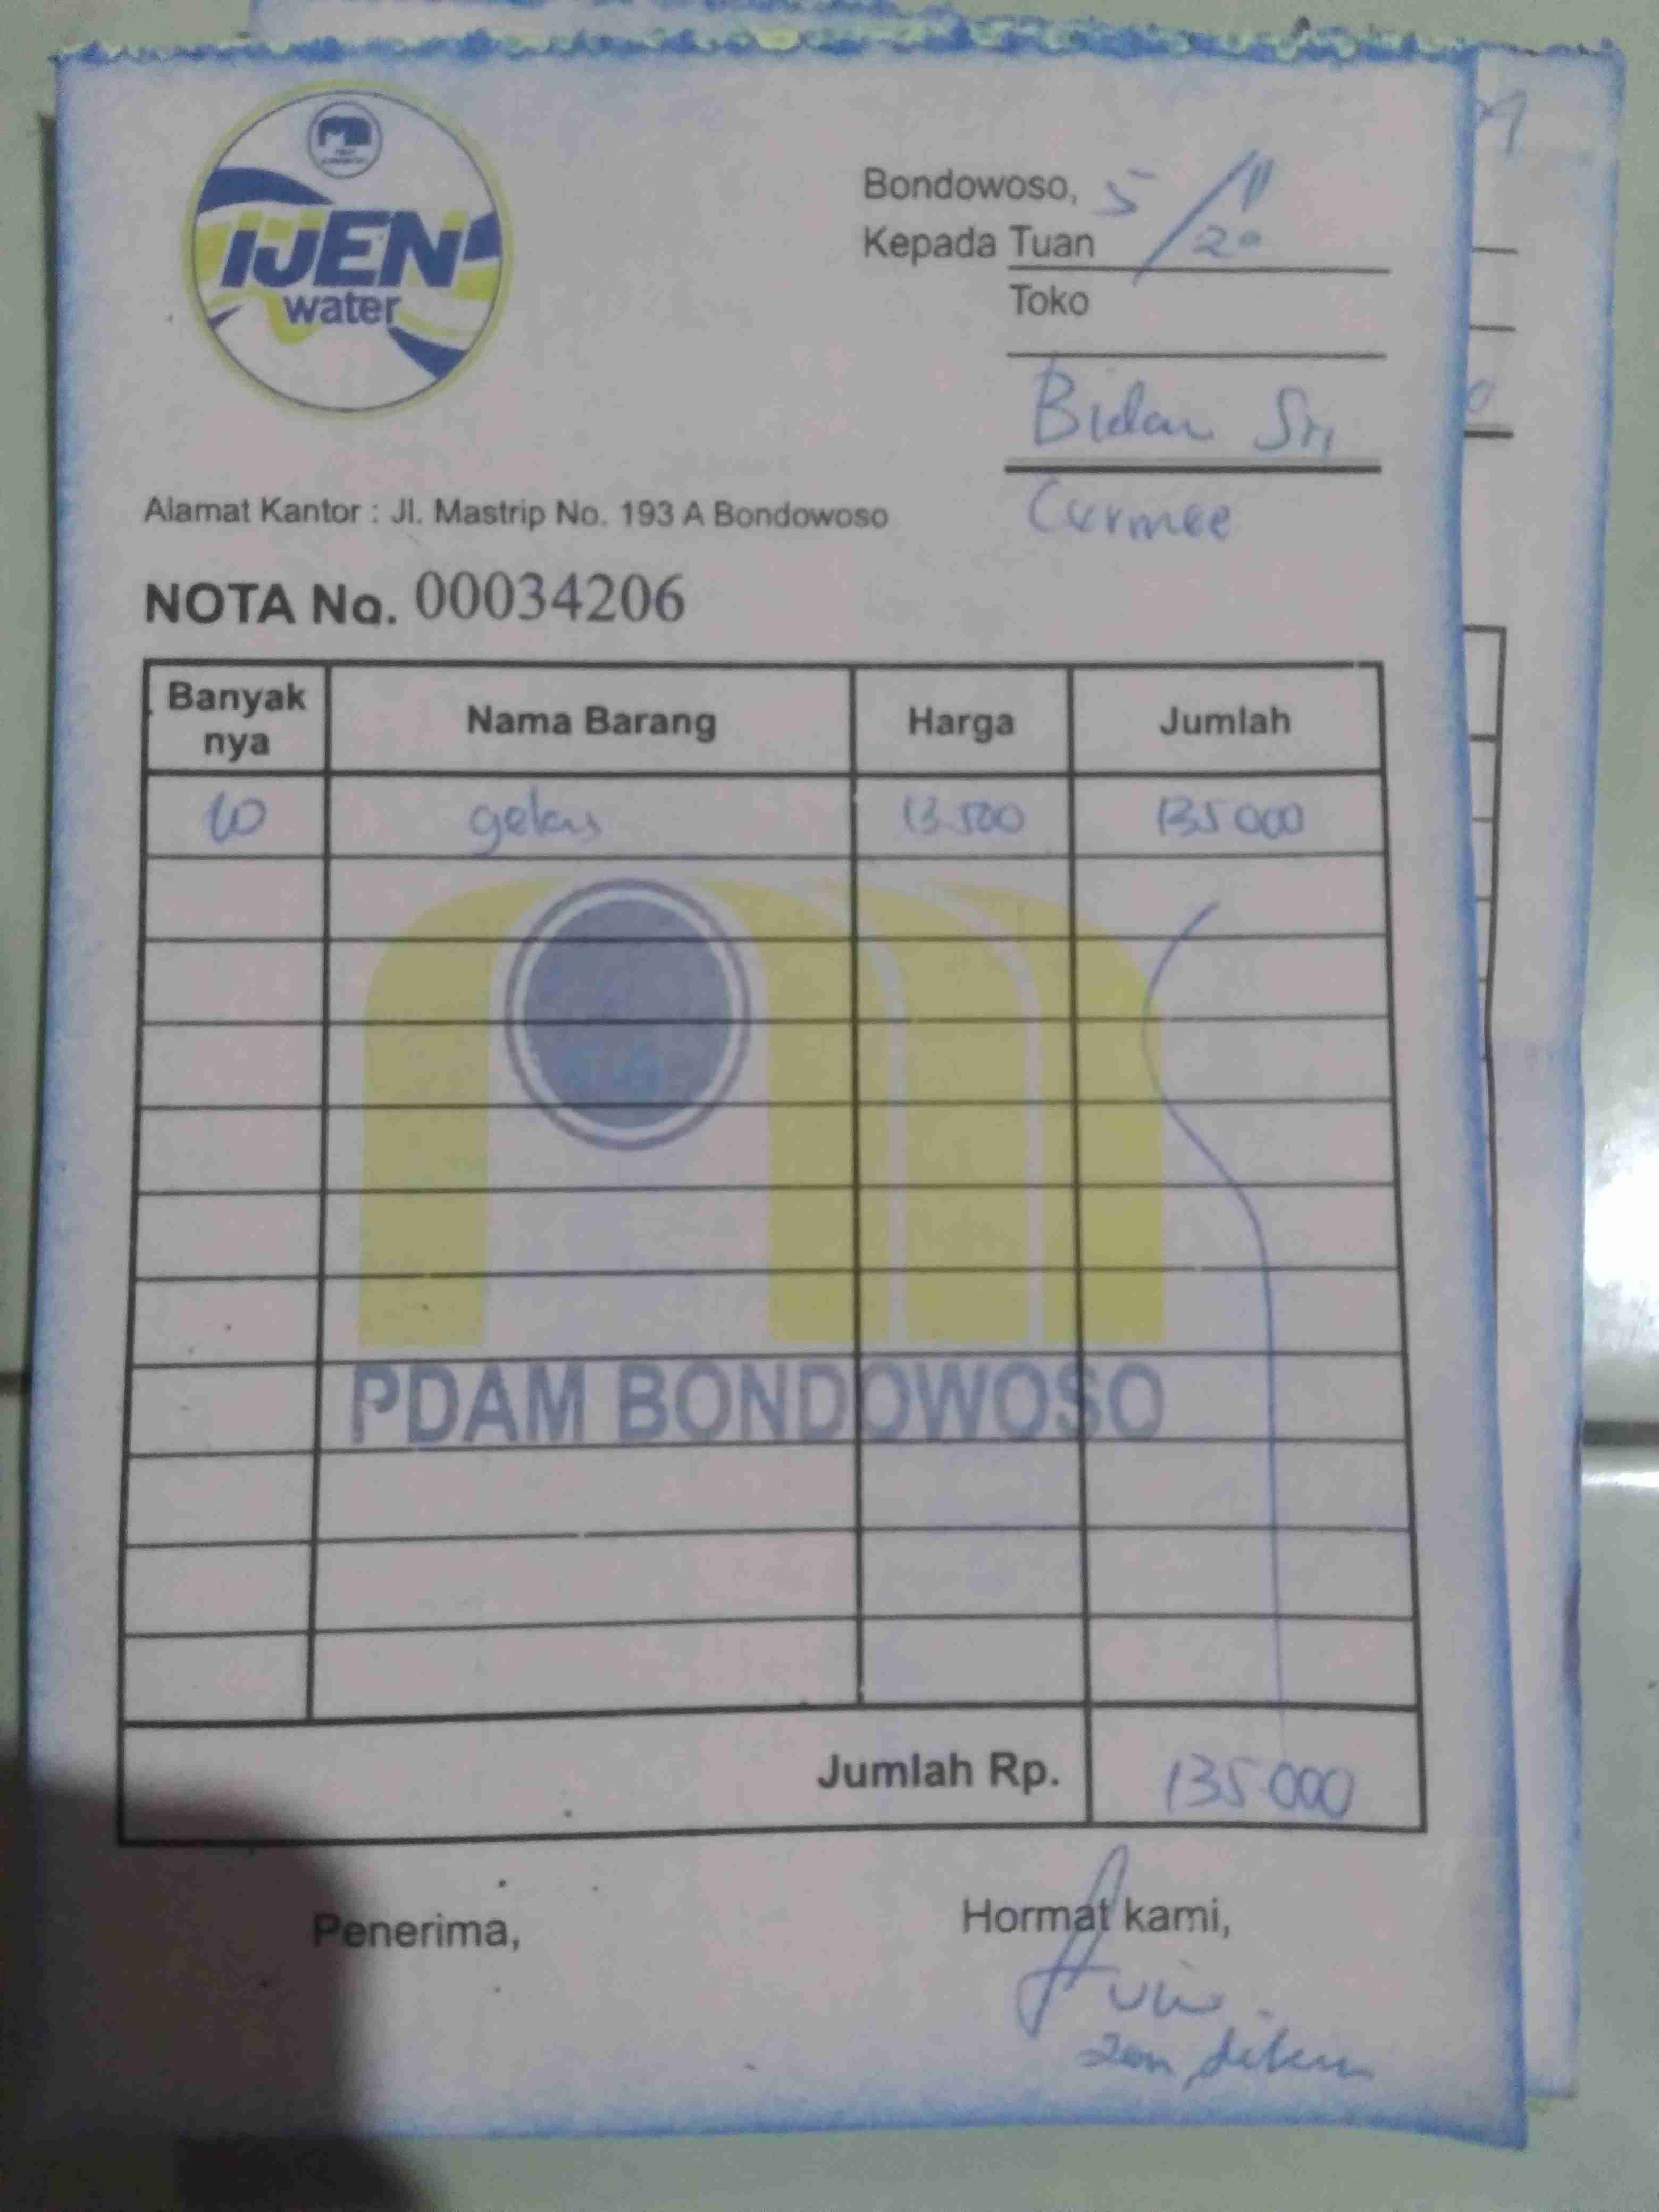 IJEN
water
Bondowoso, 5/11
20
Kepada Tuan
Toko
Bidan Sri
Cermee
Alamat Kantor : Jl. Mastrip No. 193 A Bondowoso
NOTA No. 00034206
Banyak nya Nama Barang Harga Jumlah
10 gelas 13.500 135 000
PDAM BONDOWOSO
Jumlah Rp. 135 000
Penerima, Hormat kami,